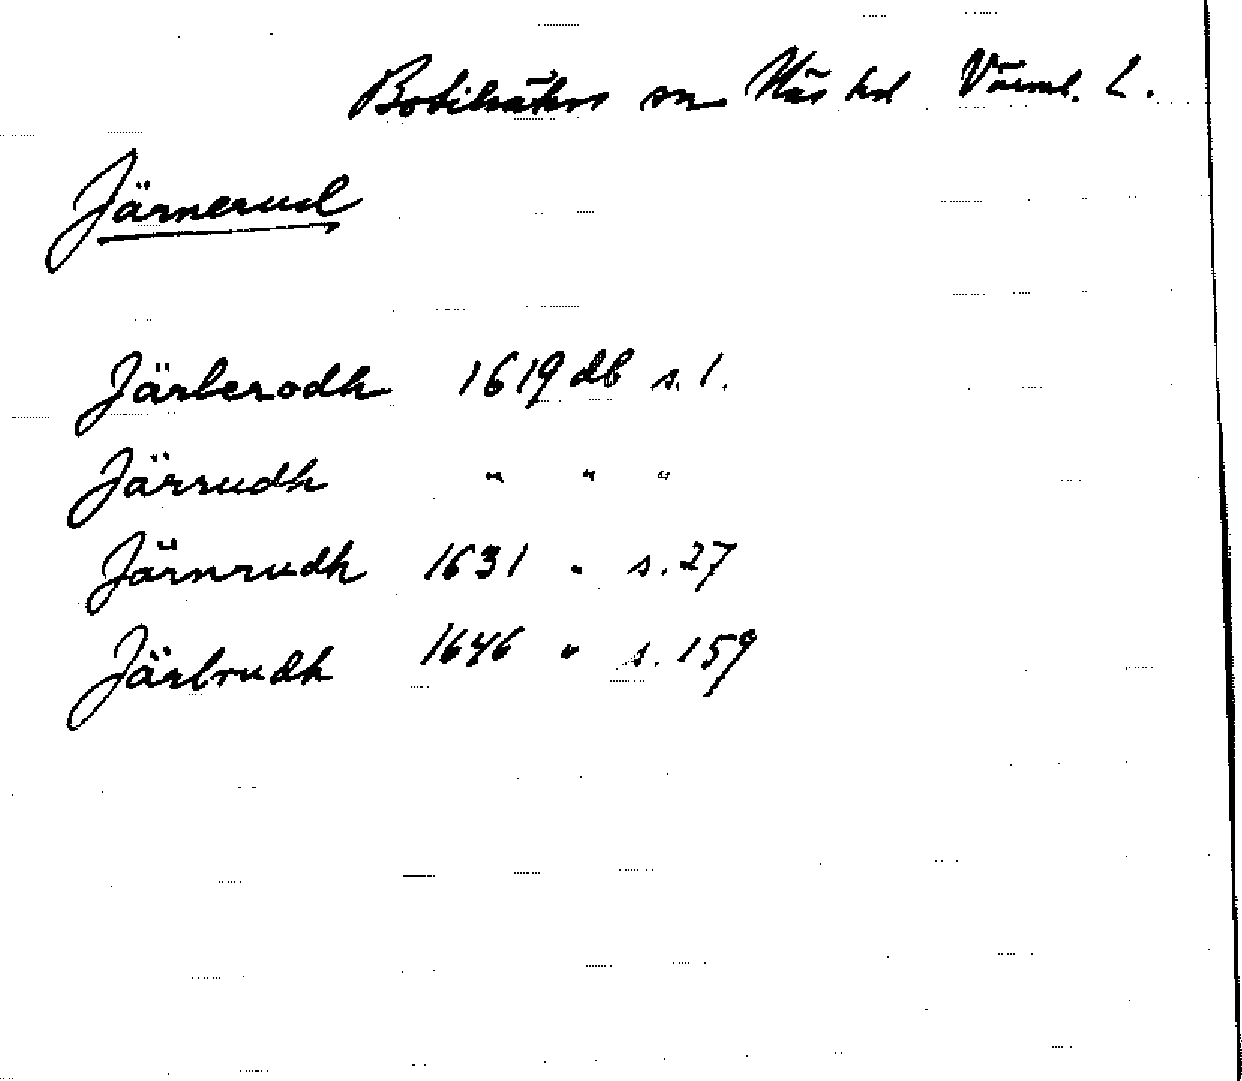 Botilsäters sn Näs hd Värml. L.
Järnerud
Järberodh 1619 db s. 1.
Järrudh " " "
Järnrudh 1631 " s. 27
Järbrudh 1646 " s. 159